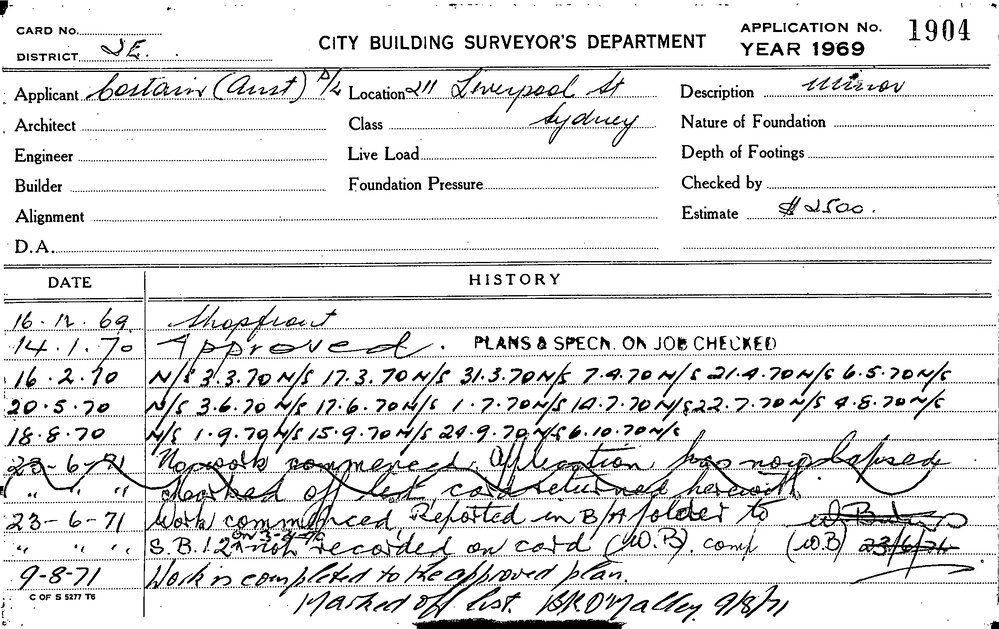 CARD No.
DISTRICT S E.
CITY BUILDING SURVEYOR'S DEPARTMENT
APPLICATION No. 1904
YEAR 1969
Applicant Costain (Aust) P/L Location 211 Liverpool St Description Minor
Architect Class Sydney Nature of Foundation
Engineer Live Load Depth of Footings
Builder Foundation Pressure Checked by
Alignment Estimate $2500.
D.A.
DATE HISTORY
16.12.69 Shopfront
14.1.70 Approved. PLANS & SPECN. ON JOB CHECKED
16.2.70 N/S 3.3.70 N/S 17.3.70 N/S 31.3.70 N/S 7.4.70 N/S 21.4.70 N/S 6.5.70 N/S
20.5.70 N/S 3.6.70 N/S 17.6.70 N/S 1.7.70 N/S 14.7.70 N/S 22.7.70 N/S 4.8.70 N/S
18.8.70 N/S 1.9.70 N/S 15.9.70 N/S 29.9.70 N/S 6.10.70 N/S
23-6-71 No work commenced. Application has now lapsed.
" " " Marked off list card returned herewith.
23-6-71 Work commenced. Reported in B/A folder to
" " " S.B.I. not recorded on card (W.B). comp (W.B) 23/6/71
9-8-71 Work is completed to the approved plan.
C OF S 5277 T6
Marked off list. B.R.O'Malley. 9/8/71